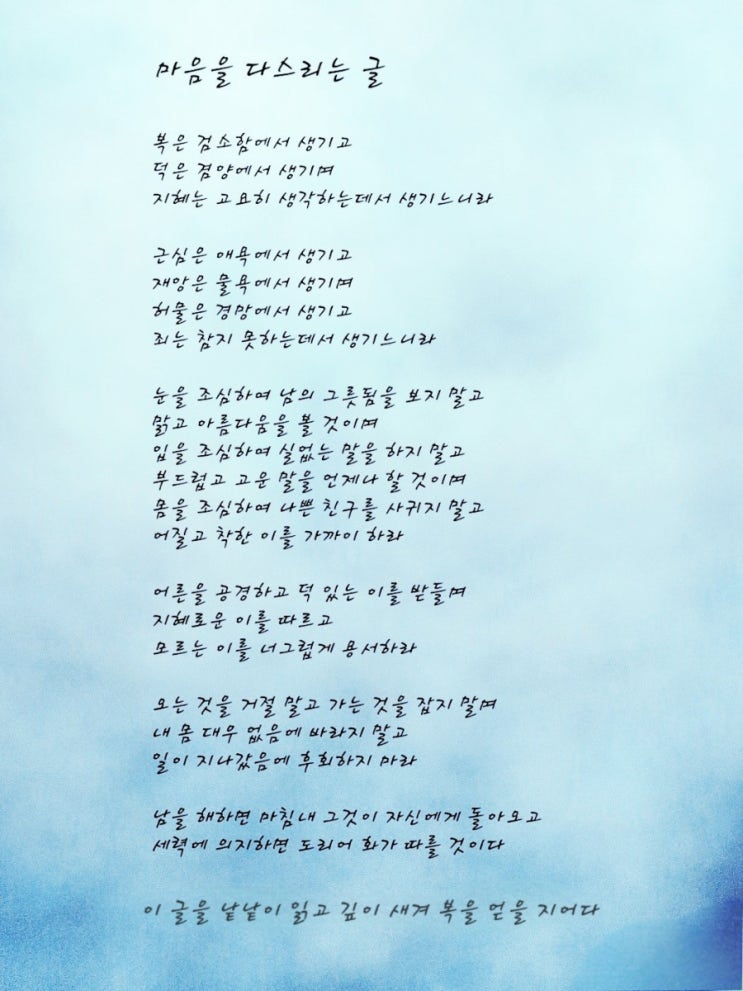 마음을 다스리는 글
복은 검소함에서 생기고
덕은 겸양에서 생기며
지혜는 고요히 생각하는데서 생기느니라
근심은 애욕에서 생기고
재앙은 물욕에서 생기며
허물은 경망에서 생기고
죄는 참지 못하는데서 생기느니라
눈을 조심하여 남의 그릇됨을 보지 말고
맑고 아름다움을 볼 것이며
입을 조심하여 실없는 말을 하지 말고
부드럽고 고운 말을 언제나 할 것이며
몸을 조심하여 나쁜 친구를 사귀지 말고
어질고 착한 이를 가까이 하라
어른을 공경하고 덕 있는 이를 받들며
지혜로운 이를 따르고
모르는 이를 너그럽게 용서하라
오는 것을 거절 말고 가는 것을 잡지 말며
내 몸 대우 없음에 바라지 말고
일이 지나갔음에 후회하지 마라
남을 해하면 마침내 그것이 자신에게 돌아오고
세력에 의지하면 도리어 화가 따를 것이다
이 글을 낱낱이 읽고 깊이 새겨 복을 얻을 지어다